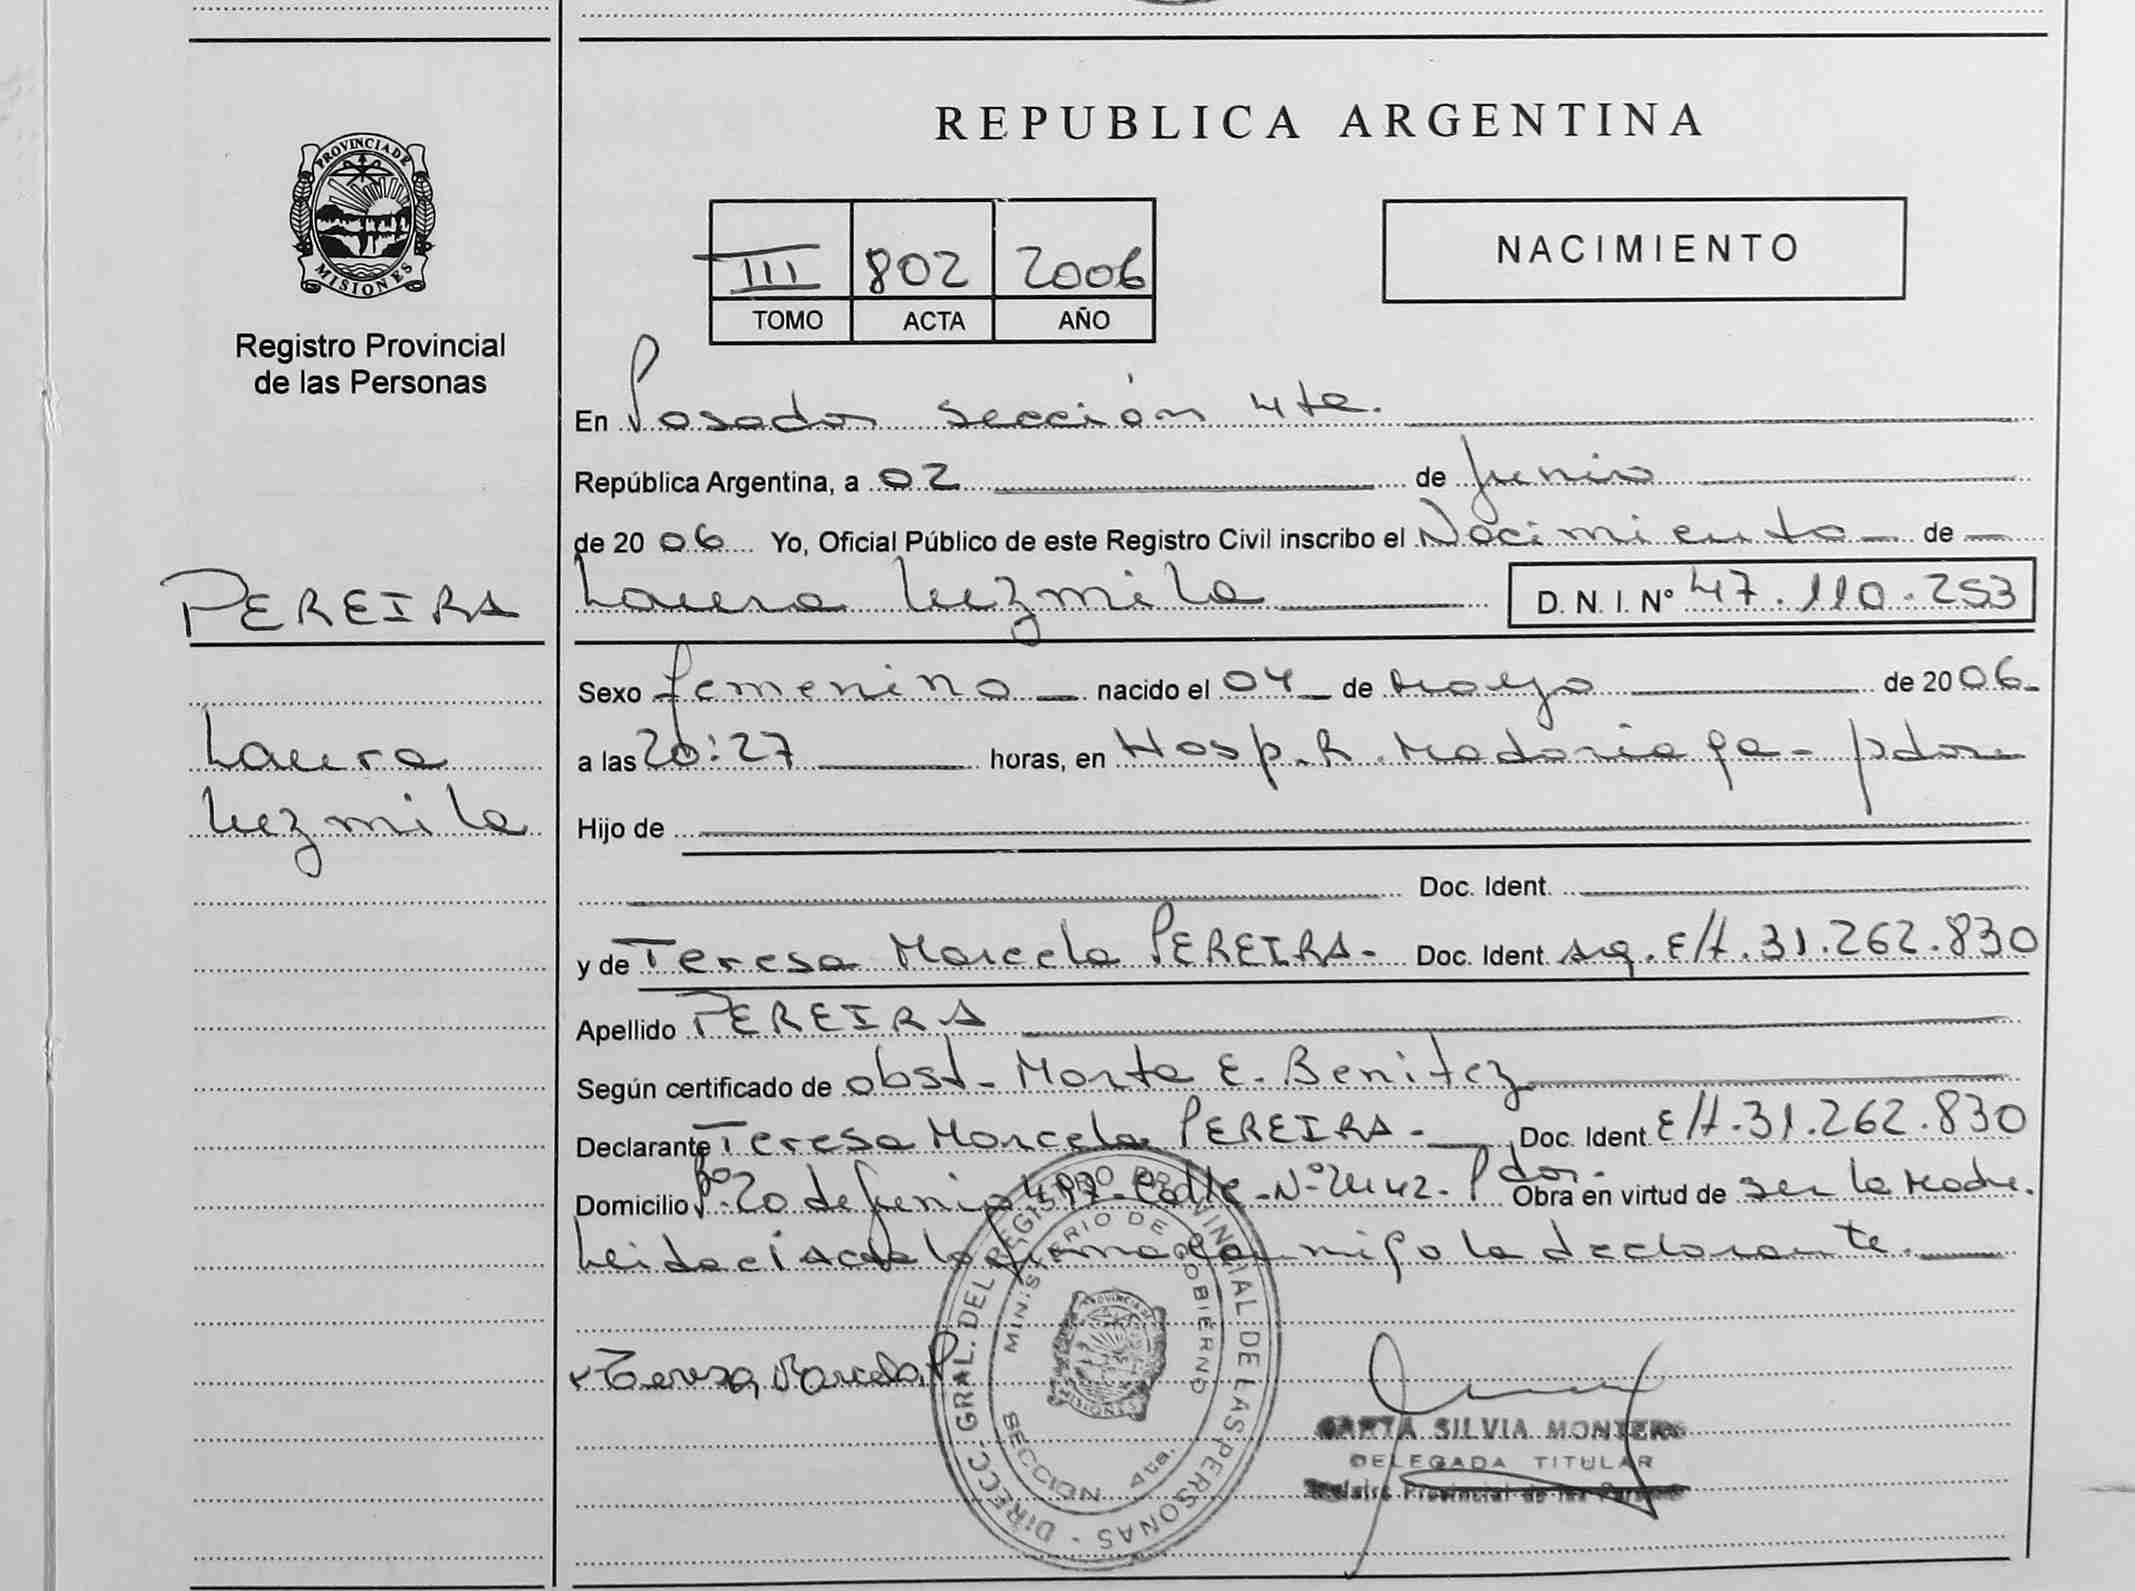 REPUBLICA ARGENTINA
PROVINCIA DE MISIONES
Registro Provincial
de las Personas
III 802 2006
TOMO ACTA AÑO
NACIMIENTO
En Posadas sección 4ta.
República Argentina, a 02 de Junio
de 2006 Yo, Oficial Público de este Registro Civil inscribo el Nacimiento de
PEREIRA
Laura Luzmila D. N. I. Nº 47.110.253
Sexo femenino nacido el 04 de Mayo de 2006
Laura
Luzmila
a las 20:27 horas, en Hosp. R. Madariaga - Pdas
Hijo de
Doc. Ident.
y de Teresa Marcela PEREIRA- Doc. Ident. Arg. E/A. 31.262.830
Apellido PEREIRA
Según certificado de obst. Marta E. Benitez
Declarante Teresa Marcela PEREIRA- Doc. Ident E/A. 31.262.830
Domicilio Bº 20 de Junio Calle Nº Pdas. Obra en virtud de ser la Madre.
Leida el Acta la firma conmigo la declarante.
Teresa Marcela P
DIRECC. GRAL. DEL REGISTRO PROVINCIAL DE LAS PERSONAS
MINISTERIO DE GOBIERNO
PROVINCIA DE MISIONES
SECCION 4ta.
SILVIA MONTERO
DELEGADA TITULAR
Registro Provincial de las Personas